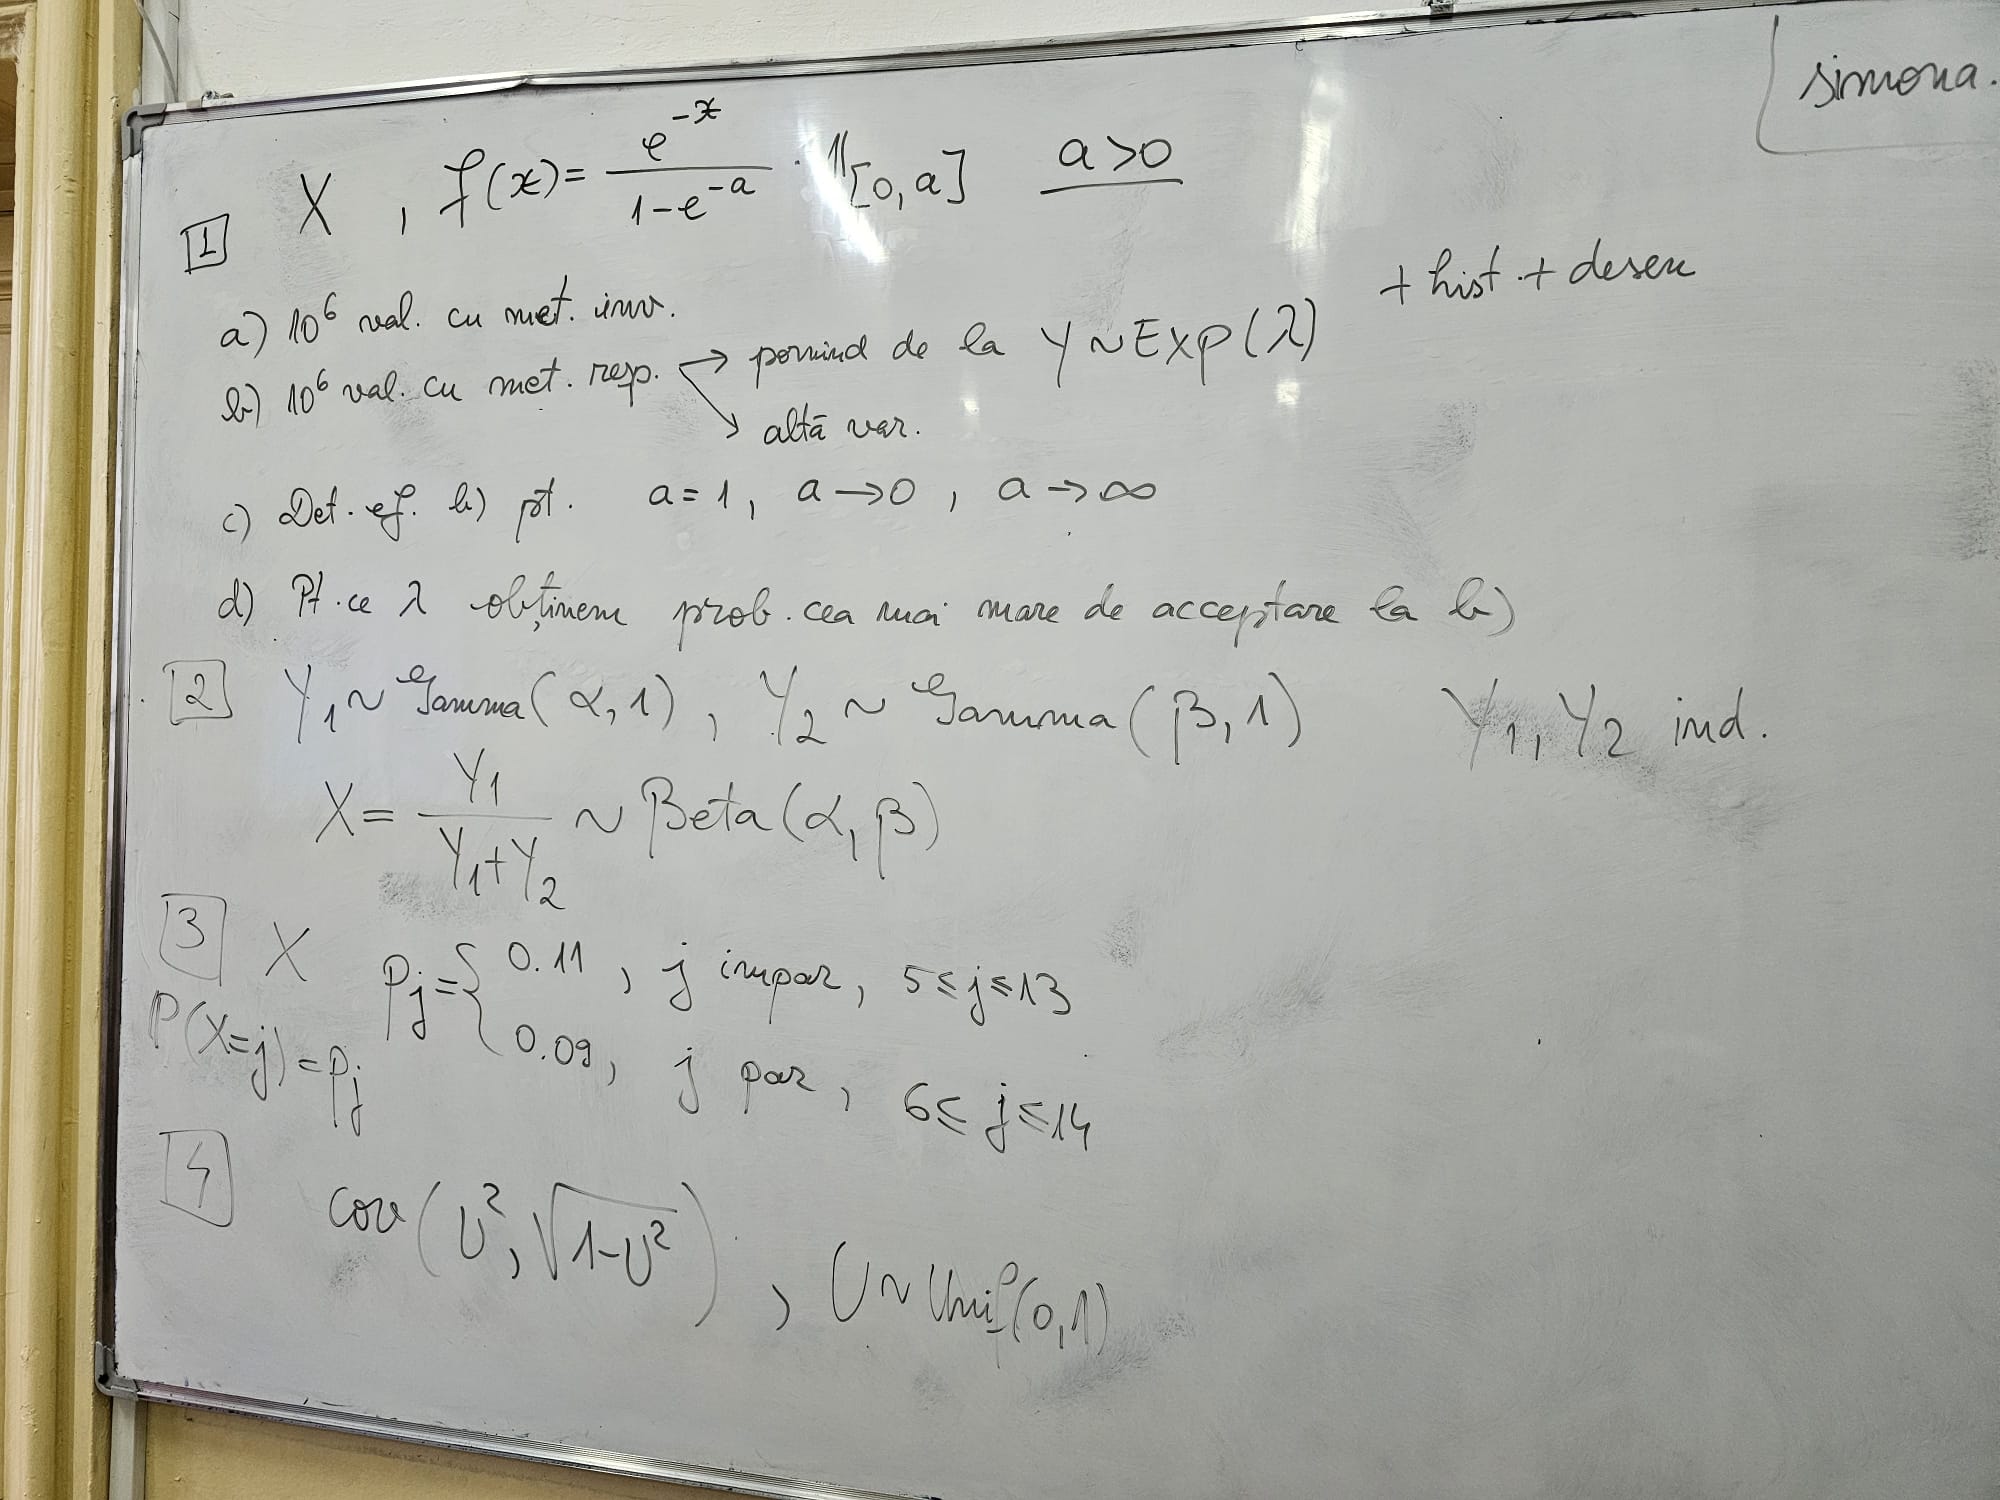 simona.
1 X , f(x) = e^{-x} / (1-e^{-a}) · 𝟙[0,a] a>0
+ hist + desen
a) 10^6 val. cu met. inv.
b) 10^6 val. cu met. resp. → pornind de la Y ~ Exp(λ)
→ altă var.
c) Det. ef. b) pt. a=1, a→0, a→∞
d) Pt. ce λ obținem prob. cea mai mare de acceptare la b)
2 Y_1 ~ Gamma(α,1), Y_2 ~ Gamma(β,1) Y_1, Y_2 ind.
X = Y_1 / (Y_1+Y_2) ~ Beta(α,β)
3 X p_j = { 0.11, j impar, 5≤j≤13
P(X=j)=p_j 0.09, j par, 6≤j≤14
4 cov(U^2, √(1-U^2)), U ~ Unif(0,1)